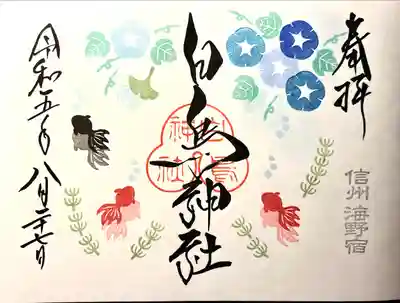 奉拝
信州 海野宿
白鳥神社
白鳥神社
令和五年
八月二十七日